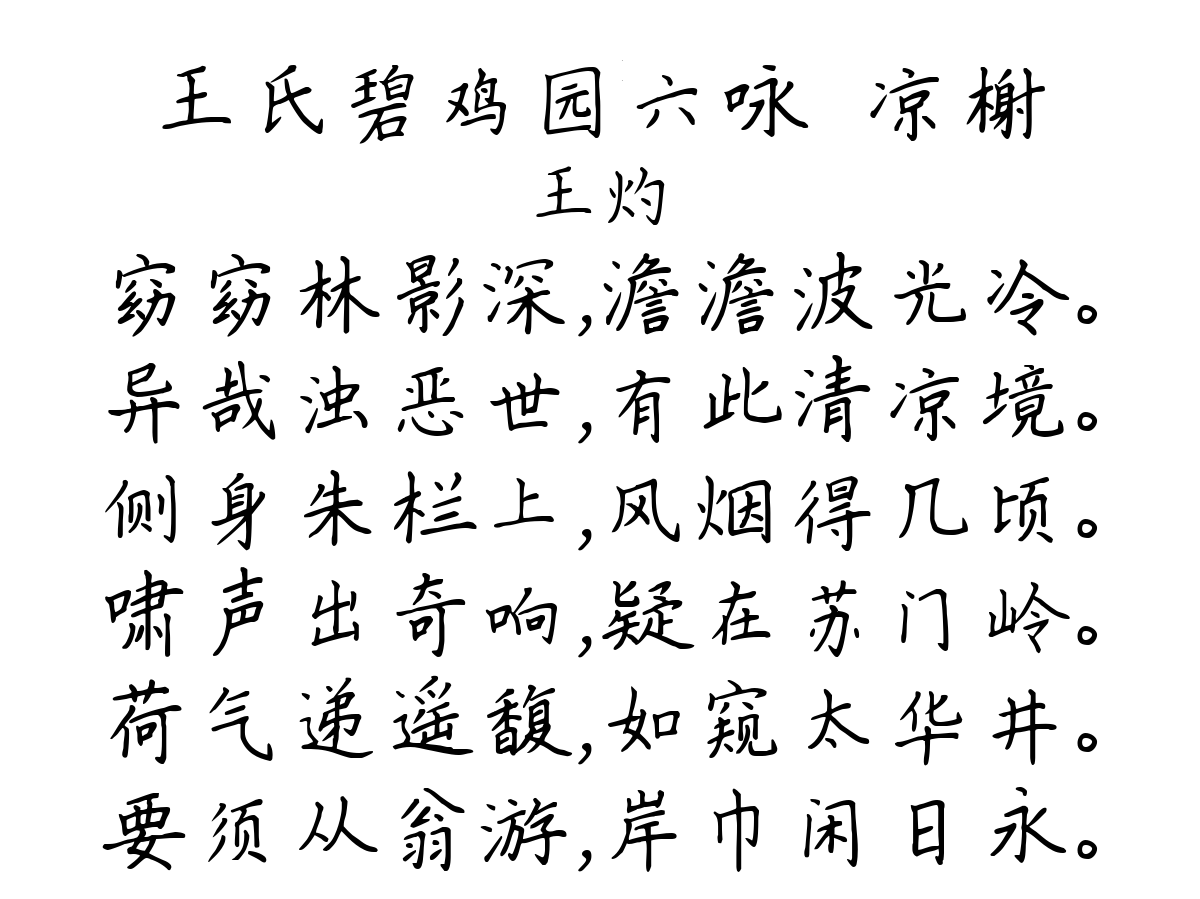 王氏碧鸡园六咏 凉榭
王灼
窈窈林影深,澹澹波光冷。
异哉浊恶世,有此清凉境。
侧身朱栏上,风烟得几顷。
啸声出奇响,疑在苏门岭。
荷气递遥馥,如窥太华井。
要须从翁游,岸巾闲日永。